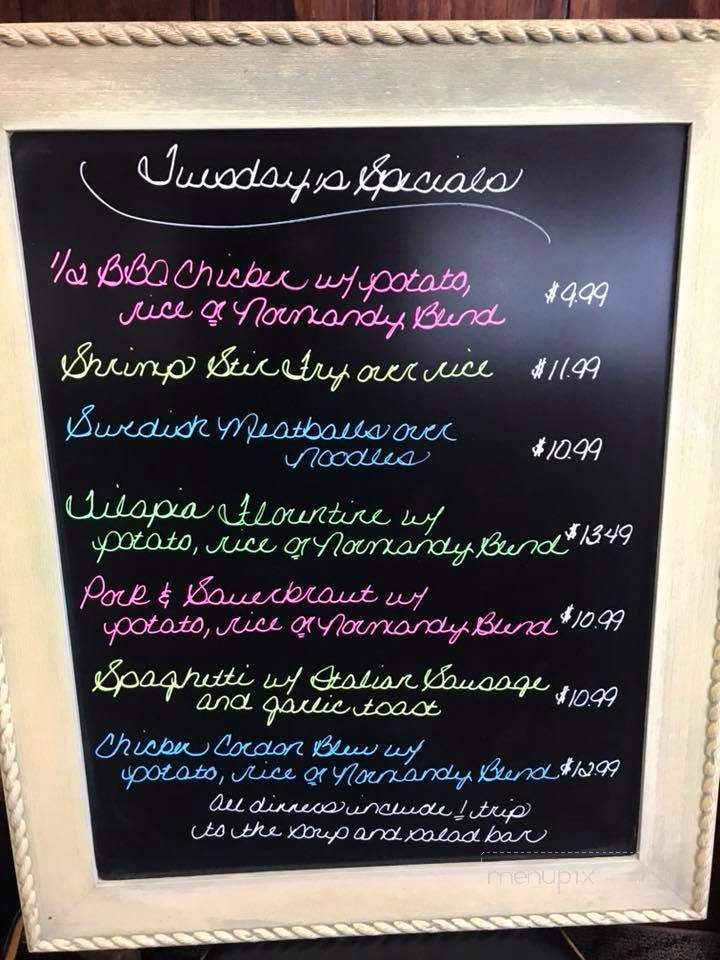 Tuesday's Specials
1/2 BBQ Chicken w/ potato, $9.99
rice or Normandy Blend
Shrimp Stir Fry over rice $11.99
Swedish Meatballs over
noodles $10.99
Tilapia Florentine w/
potato, rice or Normandy Blend $13.49
Pork & Sauerkraut w/
potato, rice or Normandy Blend $10.99
Spaghetti w/ Italian Sausage
and garlic toast $10.99
Chicken Cordon Bleu w/
potato, rice or Normandy Blend $12.99
All dinners include 1 trip
to the soup and salad bar
menupix